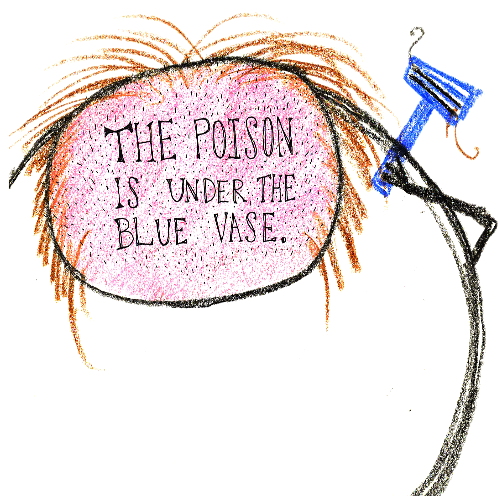 THE POISON
IS UNDER THE
BLUE VASE.